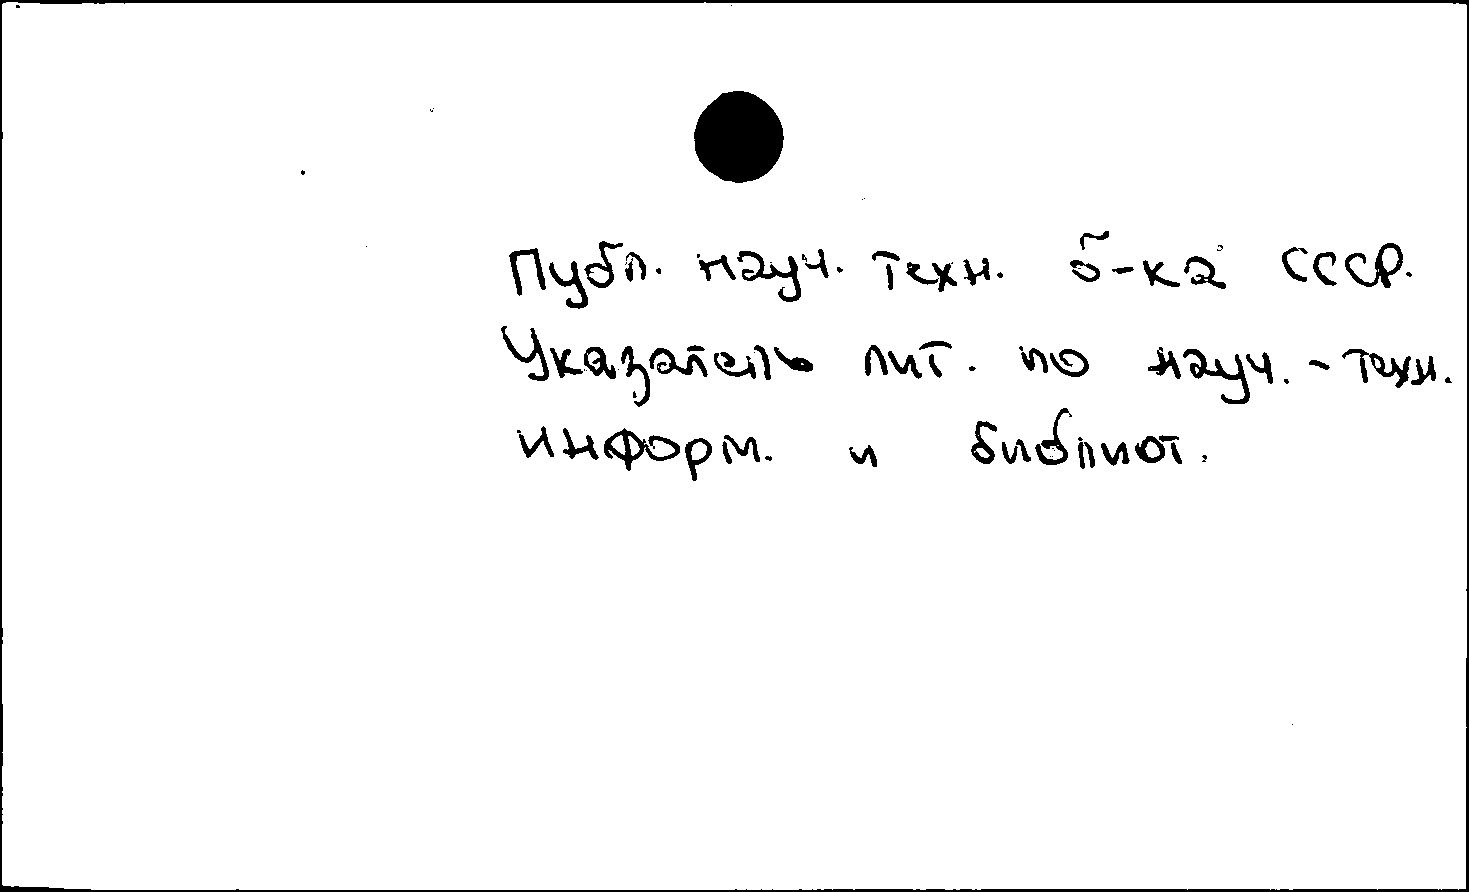 Публ. науч. техн. б-ка СССР.
Указатель лит. по науч.-техн.
информ. и библиот.